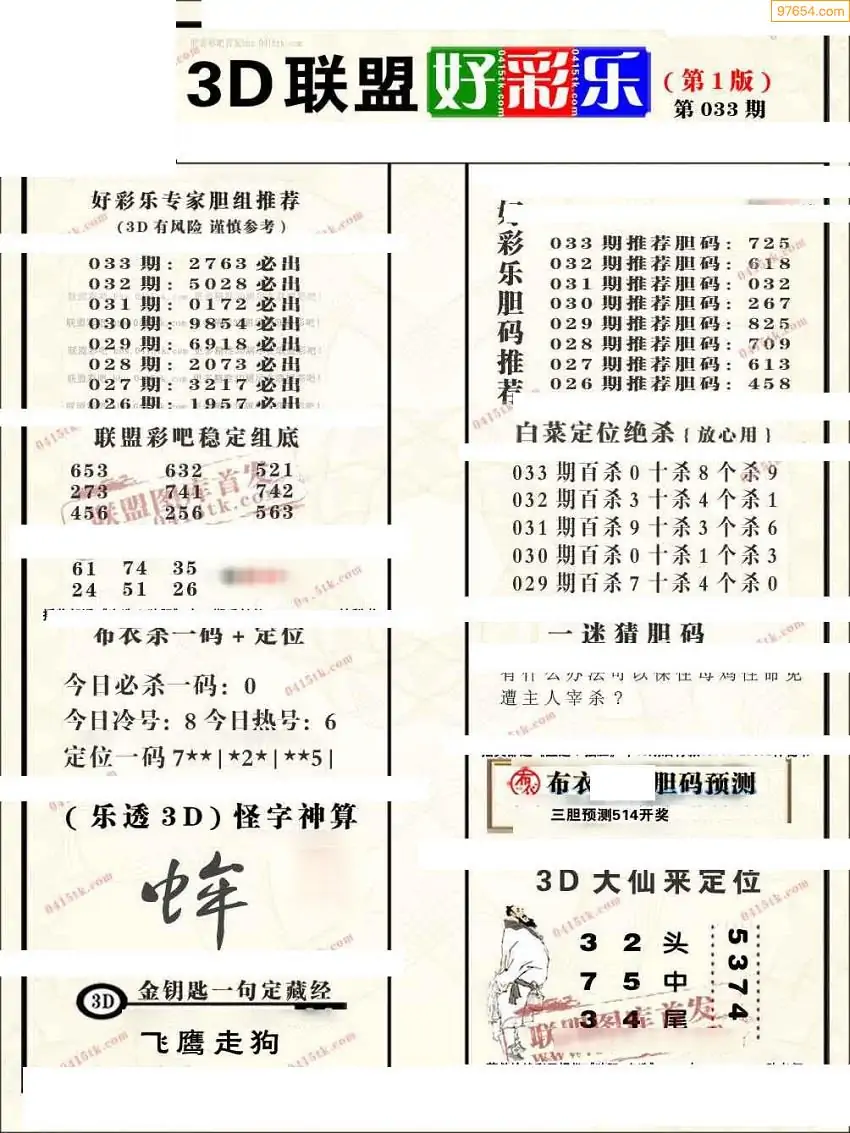 97654.com
3D联盟好彩乐
(第1版)
第 033 期
好彩乐专家胆组推荐
(3D 有风险 谨慎参考)
033 期: 2763 必出
032 期: 5028 必出
031 期: 0172 必出
030 期: 9854 必出
029 期: 6918 必出
028 期: 2073 必出
027 期: 3217 必出
026 期: 1957 必出
联盟彩吧稳定组底
653 632 521
273 741 742
456 256 563
61 74 35
24 51 26
布衣杀一码 + 定位
今日必杀一码: 0
今日冷号: 8 今日热号: 6
定位一码 7**|*2*|**5|
(乐透 3D) 怪字神算
3D 金钥匙一句定藏经
飞鹰走狗
好彩乐胆码推荐
033 期推荐胆码: 725
032 期推荐胆码: 618
031 期推荐胆码: 032
030 期推荐胆码: 267
029 期推荐胆码: 825
028 期推荐胆码: 709
027 期推荐胆码: 613
026 期推荐胆码: 458
白菜定位绝杀{放心用}
033 期百杀 0 十杀 8 个杀 9
032 期百杀 3 十杀 4 个杀 1
031 期百杀 9 十杀 3 个杀 6
030 期百杀 0 十杀 1 个杀 3
029 期百杀 7 十杀 4 个杀 0
一迷猜胆码
有什么办法可以保住母鸡性命免
遭主人宰杀?
布衣 胆码预测
三胆预测514开奖
3D 大仙来定位
3 2 头
7 5 中
3 4 尾
5374
联盟图库首发
0415tk.com